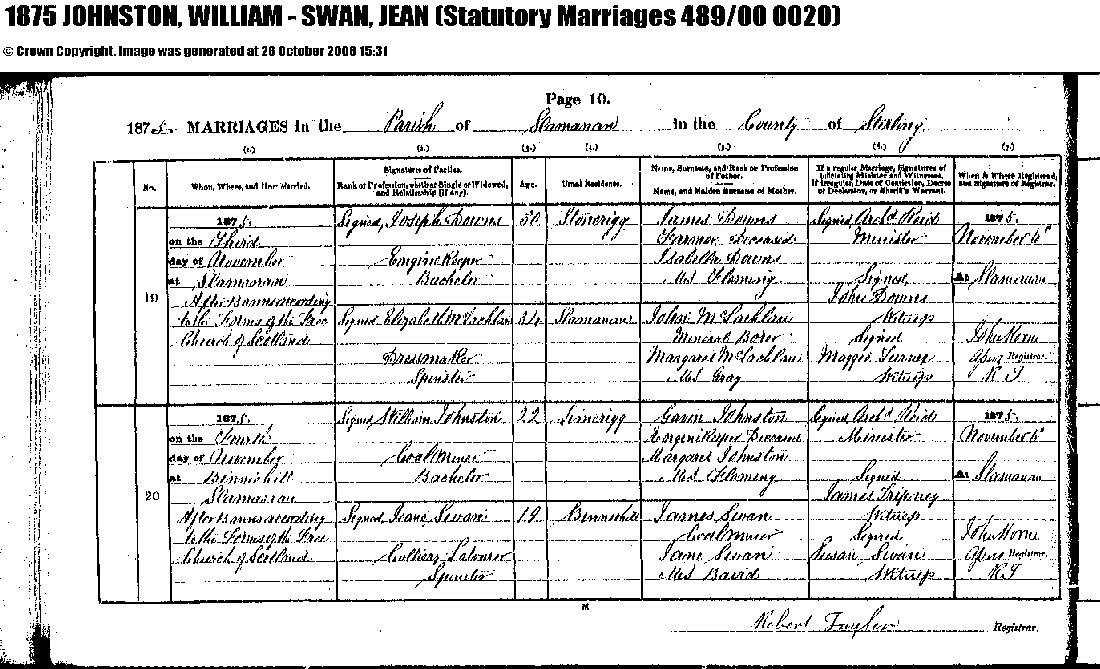 1875 JOHNSTON, WILLIAM - SWAN, JEAN (Statutory Marriages 489/00 0020)
© Crown Copyright. Image was generated at 26 October 2006 15:31
Page 10.
1875. MARRIAGES in the Parish of Slamanan in the County of Stirling
No.
When, Where, and How Married.
Signature of Parties.
Rank or Profession, whether Single or Widowed, and Relationship (if any).
Age.
Usual Residence.
Name, Surname, and Rank or Profession of Father.
Name, and Maiden Surname of Mother.
If a regular Marriage, Signatures of officiating Minister and Witnesses.
If irregular, Date of Conviction, Decree of Declarator, or Sheriff's Warrant.
When & Where Registered, and Signature of Registrar.
19
1875.
on the Third
day of November
at Slamanan
After Banns according
to the Forms of the Free
Church of Scotland
Signed, Joseph Downs
Engine Keeper
Bachelor
Signed Elizabeth McLachlan
Dressmaker
Spinster
50
34
Slamanan
James Downs
Farmer Deceased
Isabella Downs
M.S. Fleming
John McLachlan
Mineral Borer
Margaret McLachlan
M.S. Gray
Signed, Archd Reid
Minister
Signed
John Downs
Witness
Signed
Maggie
Witness
1875.
November 6th
At Slamanan
John Horne
Registrar
20
1875.
on the Fourth
day of November
at Binniehill
Slamanan
After Banns according
to the Forms of the Free
Church of Scotland
Signed William Johnston
Coalminer
Bachelor
Signed Jeane Swan
Colliery Labourer
Spinster
22
19
Limerigg
Binniehill
Gavin Johnston
Engine Keeper Deceased
Margaret Johnston
M.S. Fleming
James Swan
Coalminer
Jane Swan
M.S. Baird
Signed Archd Reid
Minister
Signed
James
Witness
Signed
Susan Swan
Witness
1875.
November 6th
At Slamanan
John Horne
Registrar
Robert
Registrar.